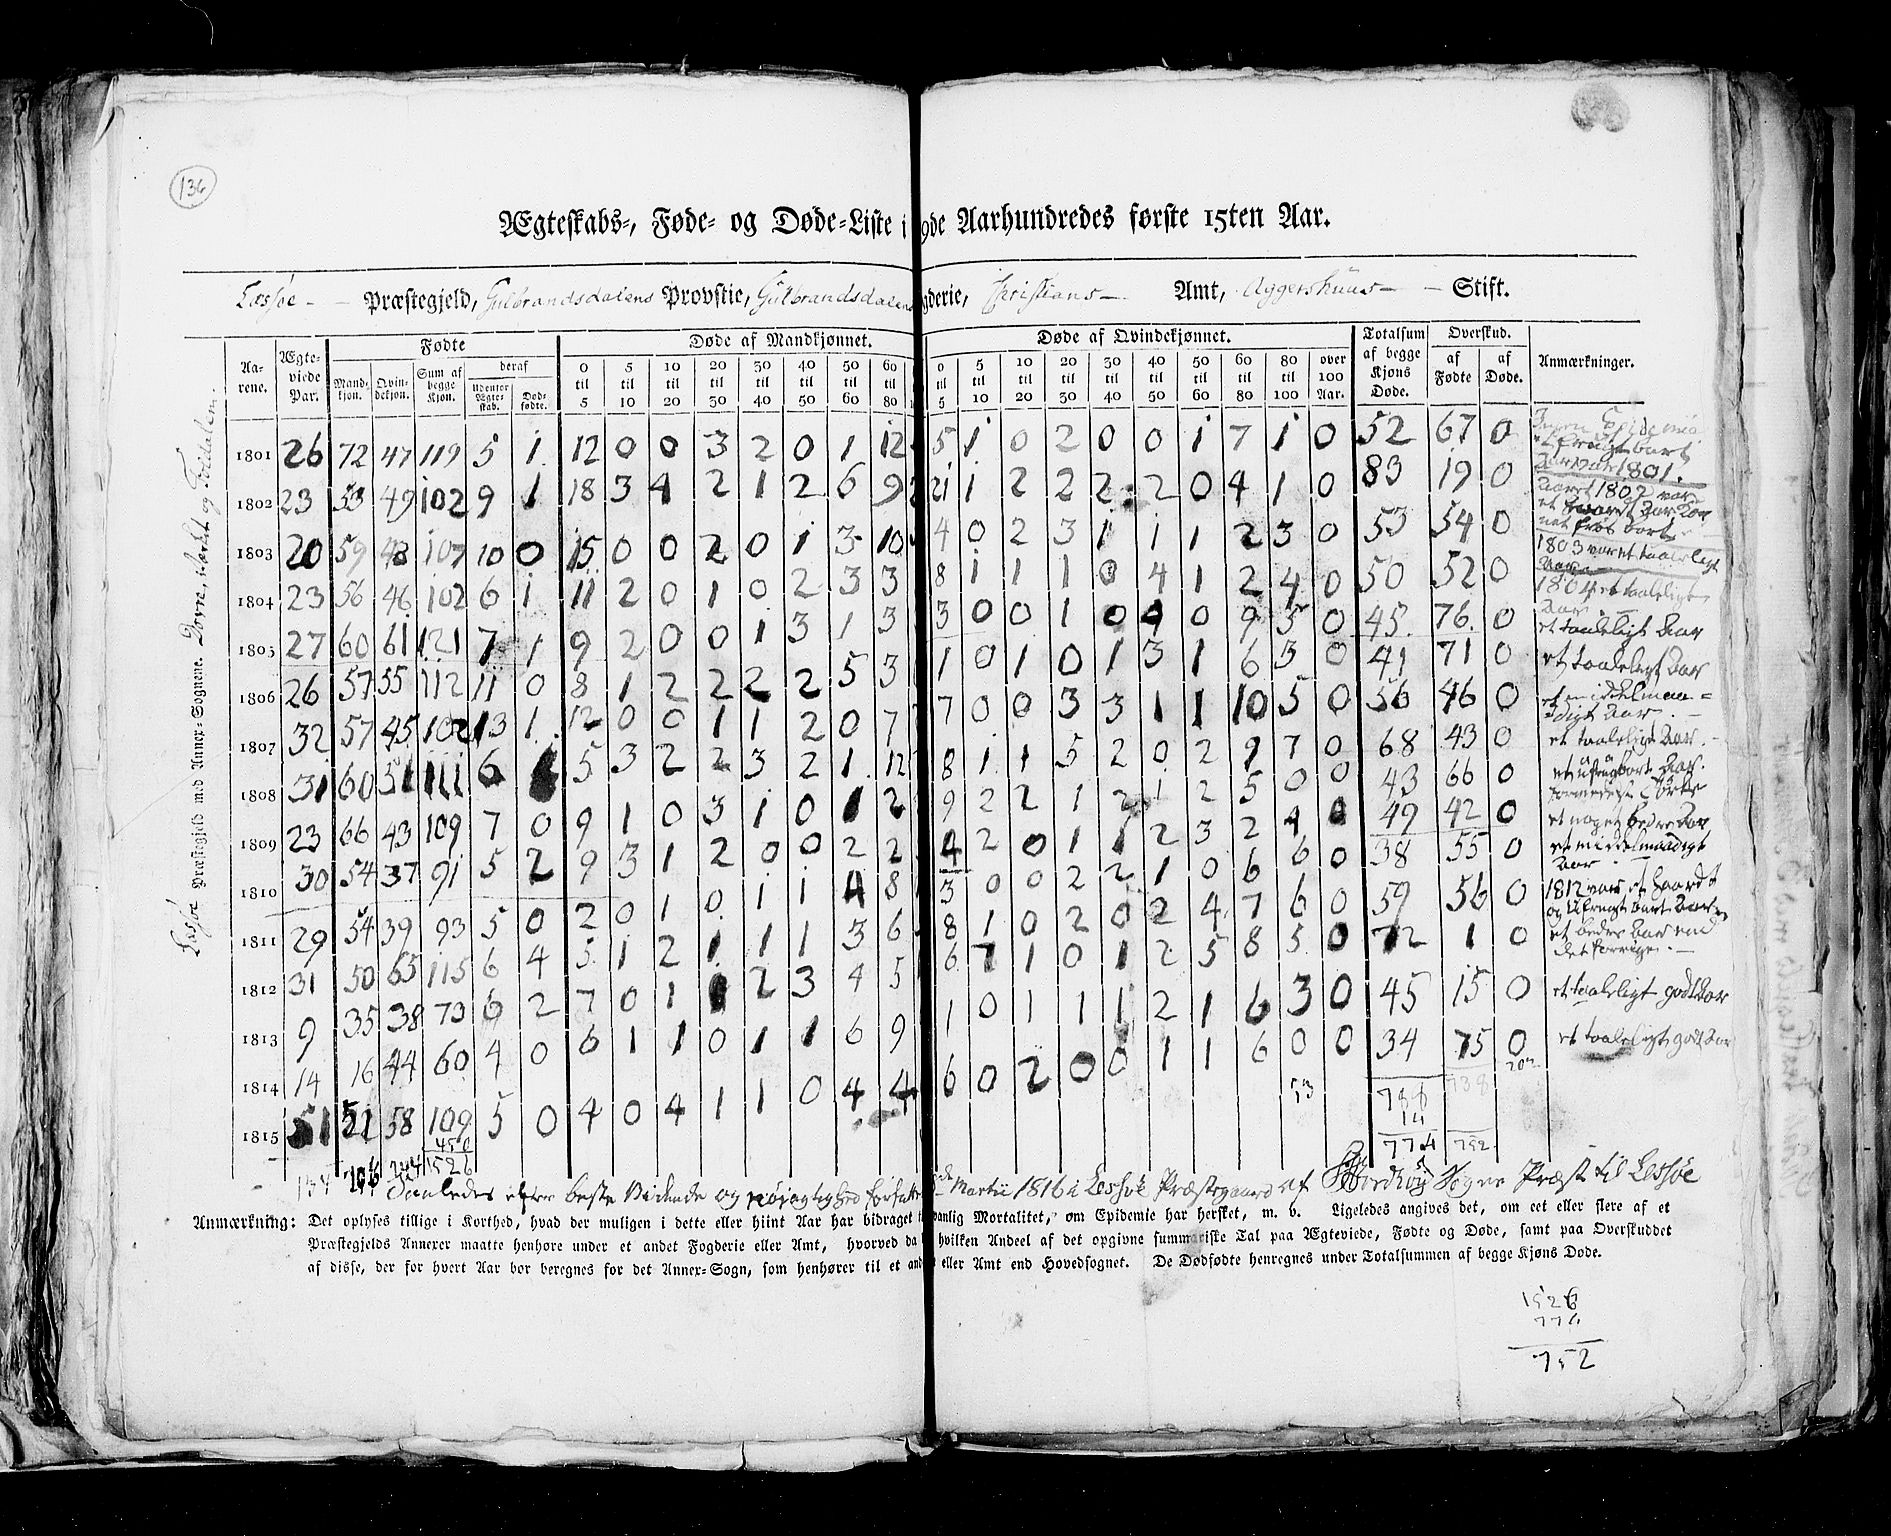 136
Ægteskabs-, Føde- og Døde-Liste i 9de Aarhundredes første 15ten Aar.
Lessøe Præstegjeld, Gulbrandsdalens Provstie, Gulbrandsdalens gderie, Christians Amt, Aggershuus Stift.
Lessøe Præstegjeld med Annex-Sognene. Dovre
Aarene. Ægteviede Par. Fødte Døde af Mandkjønnet. Døde af Qvindekjønnet. Totalsum af begge Kjøns Døde. Overskud. Anmærkninger.
Mandkjøn. Qvindekjøn. Sum af begge Kjøn. deraf af Fødte af Døde.
Udenfor Ægteskab. Dødfødte.
0 til 5 5 til 10 10 til 20 20 til 30 30 til 40 40 til 50 50 til 60 60 til 80 0 til 5 5 til 10 10 til 20 20 til 30 30 til 40 40 til 50 50 til 60 60 til 80 80 til 100 over 100 Aar.
1801 26 72 47 119 5 1 12 0 0 3 2 0 1 12 5 1 0 2 0 0 1 7 1 0 52 67 0 Epidemia
et frugtbart
Aar var 1801.
1802 23 53 49 102 9 1 18 3 4 2 1 2 6 9 21 1 2 2 2 2 0 4 1 0 83 19 0 Aaret 1802 var
et Aar
1803 20 59 48 107 10 0 15 0 0 2 0 1 3 10 4 0 2 3 1 1 1 2 3 0 53 54 0 1803 var et taaleligt
Aar
1804 23 56 46 102 6 1 11 2 0 1 0 2 3 3 8 1 1 1 0 4 1 2 4 0 50 52 0 1804 et taaleligt
Aar
1805 27 60 61 121 7 1 9 2 0 0 1 3 1 3 3 0 0 1 0 4 0 9 5 0 45 76 0 et taaleligt Aar
1806 26 57 55 112 11 0 8 1 2 2 2 2 5 3 1 0 1 0 1 3 1 6 3 0 41 71 0 et taaleligt Aar
1807 32 57 45 102 13 1 12 0 0 1 1 2 0 7 7 0 0 3 3 1 1 10 5 0 56 46 0 et middelmaa=
digt Aar
1808 31 60 51 111 6 5 3 2 2 3 2 1 12 8 1 1 5 2 0 2 9 7 0 68 43 0 et taaleligt Aar.
1809 23 66 43 109 7 0 9 1 0 3 1 0 1 2 9 2 2 1 2 1 2 5 0 0 43 66 0 et ufrugtbart Aar.
Tørke
1810 30 54 37 91 5 2 9 3 1 2 0 0 2 2 4 2 0 1 1 2 3 2 4 0 49 42 0 et noget bedre Aar
1811 29 54 39 93 5 0 2 0 1 0 1 1 4 8 3 0 0 2 2 1 0 6 6 0 38 55 0 et middelmaadigt
Aar
1812 31 50 65 115 6 4 5 1 2 1 1 1 3 6 8 1 0 2 0 2 4 7 6 0 59 56 0 1812 var et haardt
og Ufrugtbart Aar
1813 9 35 38 73 6 2 7 0 1 1 2 3 4 5 6 7 1 0 1 2 5 8 5 0 72 1 0 et bedre Aar end
det forrige.
1814 14 16 44 60 4 0 6 1 1 0 1 1 6 9 1 0 1 1 1 2 1 6 3 0 45 15 0 et taaleligt godt Aar
1815 51 51 58 109 5 0 4 0 4 1 1 0 4 4 6 0 2 0 0 1 1 6 0 0 34 75 0 et taaleligt godt Aar
450 53 738
1526 774 752
Saaledes efter beste Vidende og nøiagtighed forfattet Martii 1816 i Lessøe Præstegaard af Sogne Præst til Lessøe
Anmærkning: Det oplyses tillige i Korthed, hvad der muligen i dette eller hiint Aar har bidraget til vanlig Mortalitet, om Epidemie har hersket, m. v. Ligeledes angives det, om eet eller flere af et
Præstegjelds Annexer maatte henhøre under et andet Fogderie eller Amt, hvorved da hvilken Andeel af det opgivne summariske Tal paa Ægteviede, Fødte og Døde, samt paa Overskuddet
af disse, der for hvert Aar bør beregnes for det Annex-Sogn, som henhører til et andet eller Amt end Hovedsognet. De Dødfødte henregnes under Totalsummen af begge Kjøns Døde.
1526
774
752